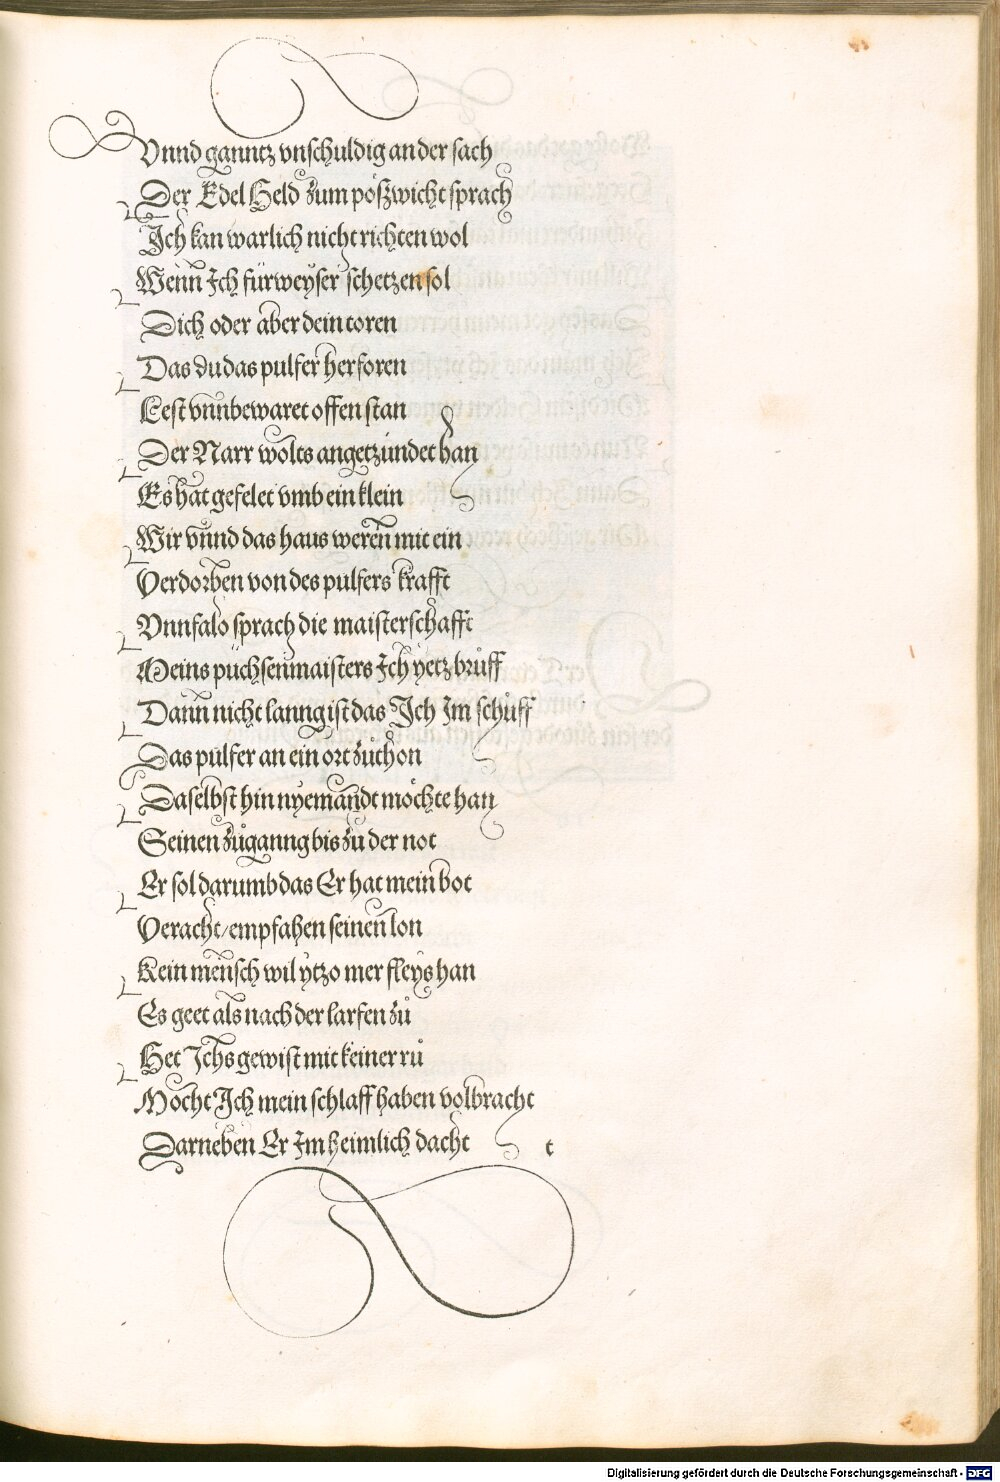 Vnnd ganntz vnschuldig an der sach
Der Edel Held zum pößzwicht sprach
Ich kan warlich nicht richten wol
Wenn Ich für weyser schetzen sol
Dich oder aber dein toren
Das du das pulfer herforen
Lest vnnbewaret offen stan
Der Narr wolts angetzündet han
Es hat gefelet vmb ein klein
Wir vnnd das haus weren mit ein
Verdorben von des pulfers krafft
Vnnfalo sprach die maisterschafft
Meins püchsenmaisters Ich yetz brůff
Dann nicht lanng ist das Ich Im schůff
Das pulfer an ein ort zůthon
Daselbst hin nyemandt möchte han
Seinen zůganng bis zů der not
Er sol darumb das Er hat mein bot
Veracht/ empfahen seinen lon
Kein mensch wil ytzo mer fleys han
Es geet als nach der larfen zů
Het Ichs gewist mit keiner rů
Mocht Ich mein schlaff haben volbracht
Darneben Er Im heimlich dacht
t
Digitalisierung gefördert durch die Deutsche Forschungsgemeinschaft - DFG